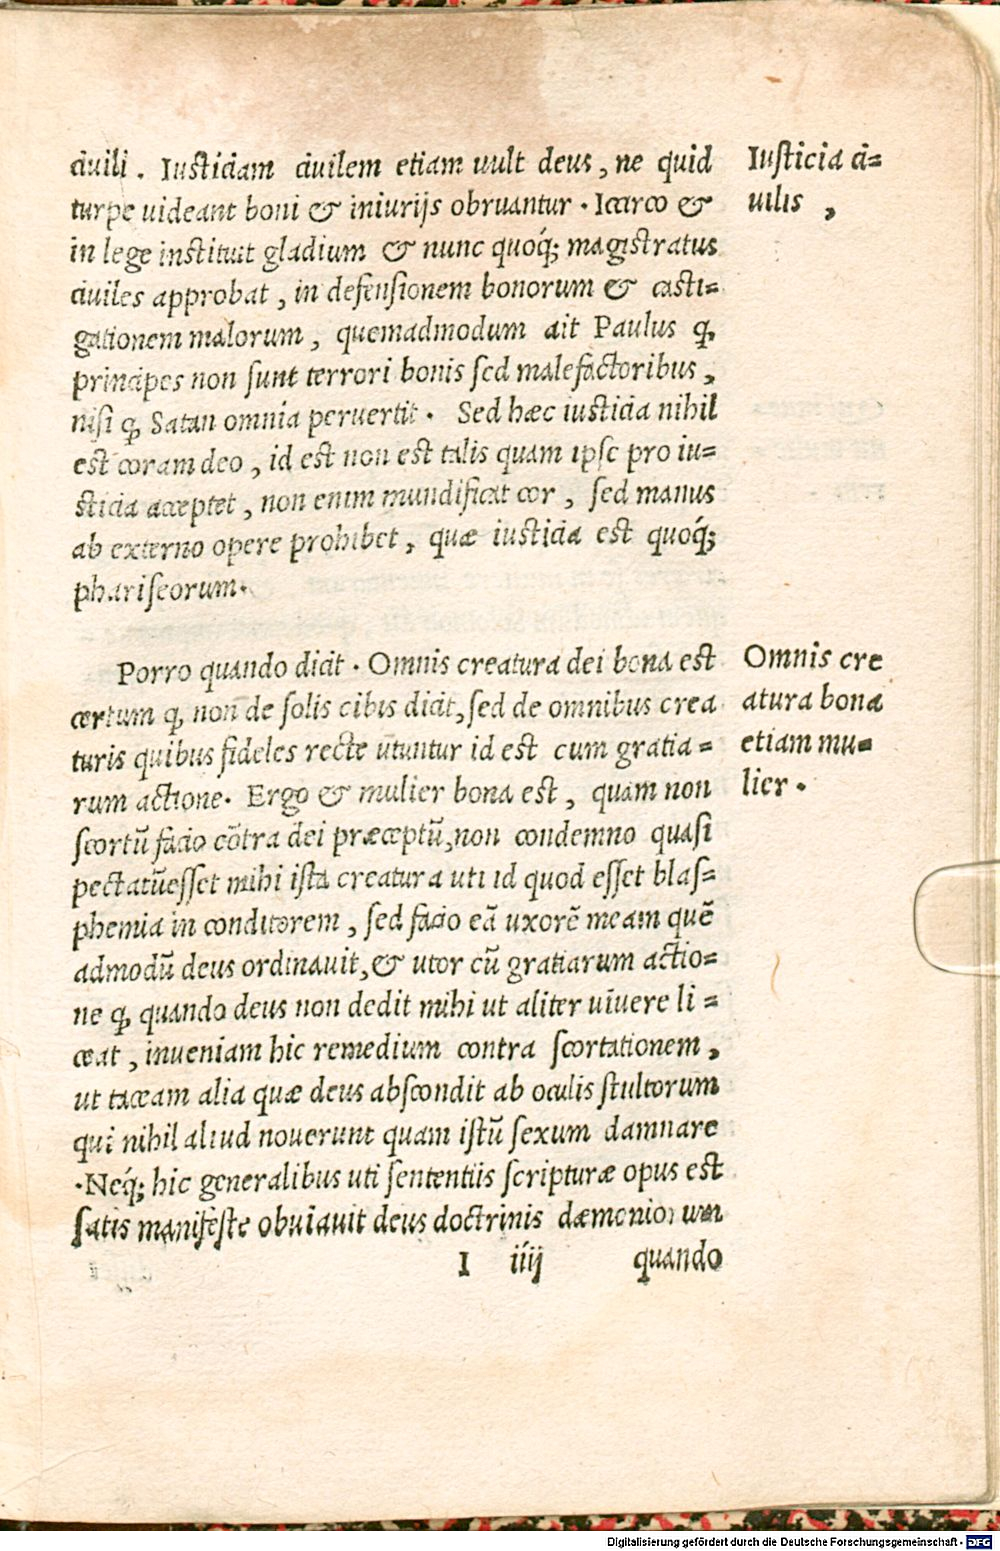 ciuili . Iusticiam ciuilem etiam uult deus, ne quid
turpe uideant boni & iniurijs obruantur · Icarco &
in lege instituit gladium & nunc quoq́; magistratus
ciuiles approbat, in defensionem bonorum & casti=
gationem malorum, quemadmodum ait Paulus ꝙ
principes non sunt terrori bonis sed malefactoribus,
nisi ꝙ Satan omnia peruertit · Sed hæc iusticia nihil
est coram deo, id est non est talis quam ipse pro iu=
sticia acceptet, non enim mundificat cor, sed manus
ab externo opere prohibet, quæ iusticia est quoq́;
phariseorum·
Iusticia ci=
uilis ,
Porro quando dicit · Omnis creatura dei bona est
certum ꝙ non de solis cibis dicit, sed de omnibus crea
turis quibus fideles recte utuntur id est cum gratia=
rum actione· Ergo & mulier bona est, quam non
scortū facio cōtra dei præceptū, non condemno quasi
pectatūesset mihi ista creatura uti id quod esset blas=
phemia in conditorem, sed facio eā uxorē meam quē
admodū deus ordinauit, & utor cū gratiarum actio=
ne ꝙ quando deus non dedit mihi ut aliter uiuere li=
ceat, inueniam hic remedium contra scortationem,
ut taceam alia quæ deus abscondit ab oculis stultorum
qui nihil aliud nouerunt quam istū sexum damnare
·Neq́; hic generalibus uti sententiis scripturæ opus est
satis manifeste obuiauit deus doctrinis dæmoniorum
Omnis cre
atura bona
etiam mu=
lier ·
I iiij quando
Digitalisierung gefördert durch die Deutsche Forschungsgemeinschaft - DFG